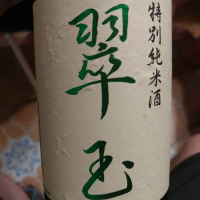 特別純米酒
翠玉